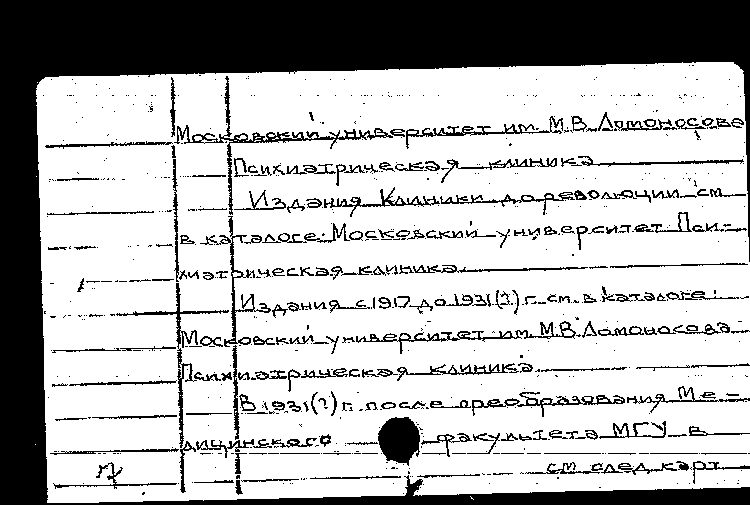 Московский университет им. М.В. Ломоносова
Психиатрическая клиника
Издания Клиники до революции см
в каталоге: Московский университет Пси-
хиатрическая клиника.
Издания с 1917 до 1931(?) г. см. в каталоге:
Московский университет им. М.В. Ломоносова
Психиатрическая клиника.
В 1931(?) г. после преобразования Ме-
дицинского факультета МГУ в
см след карт